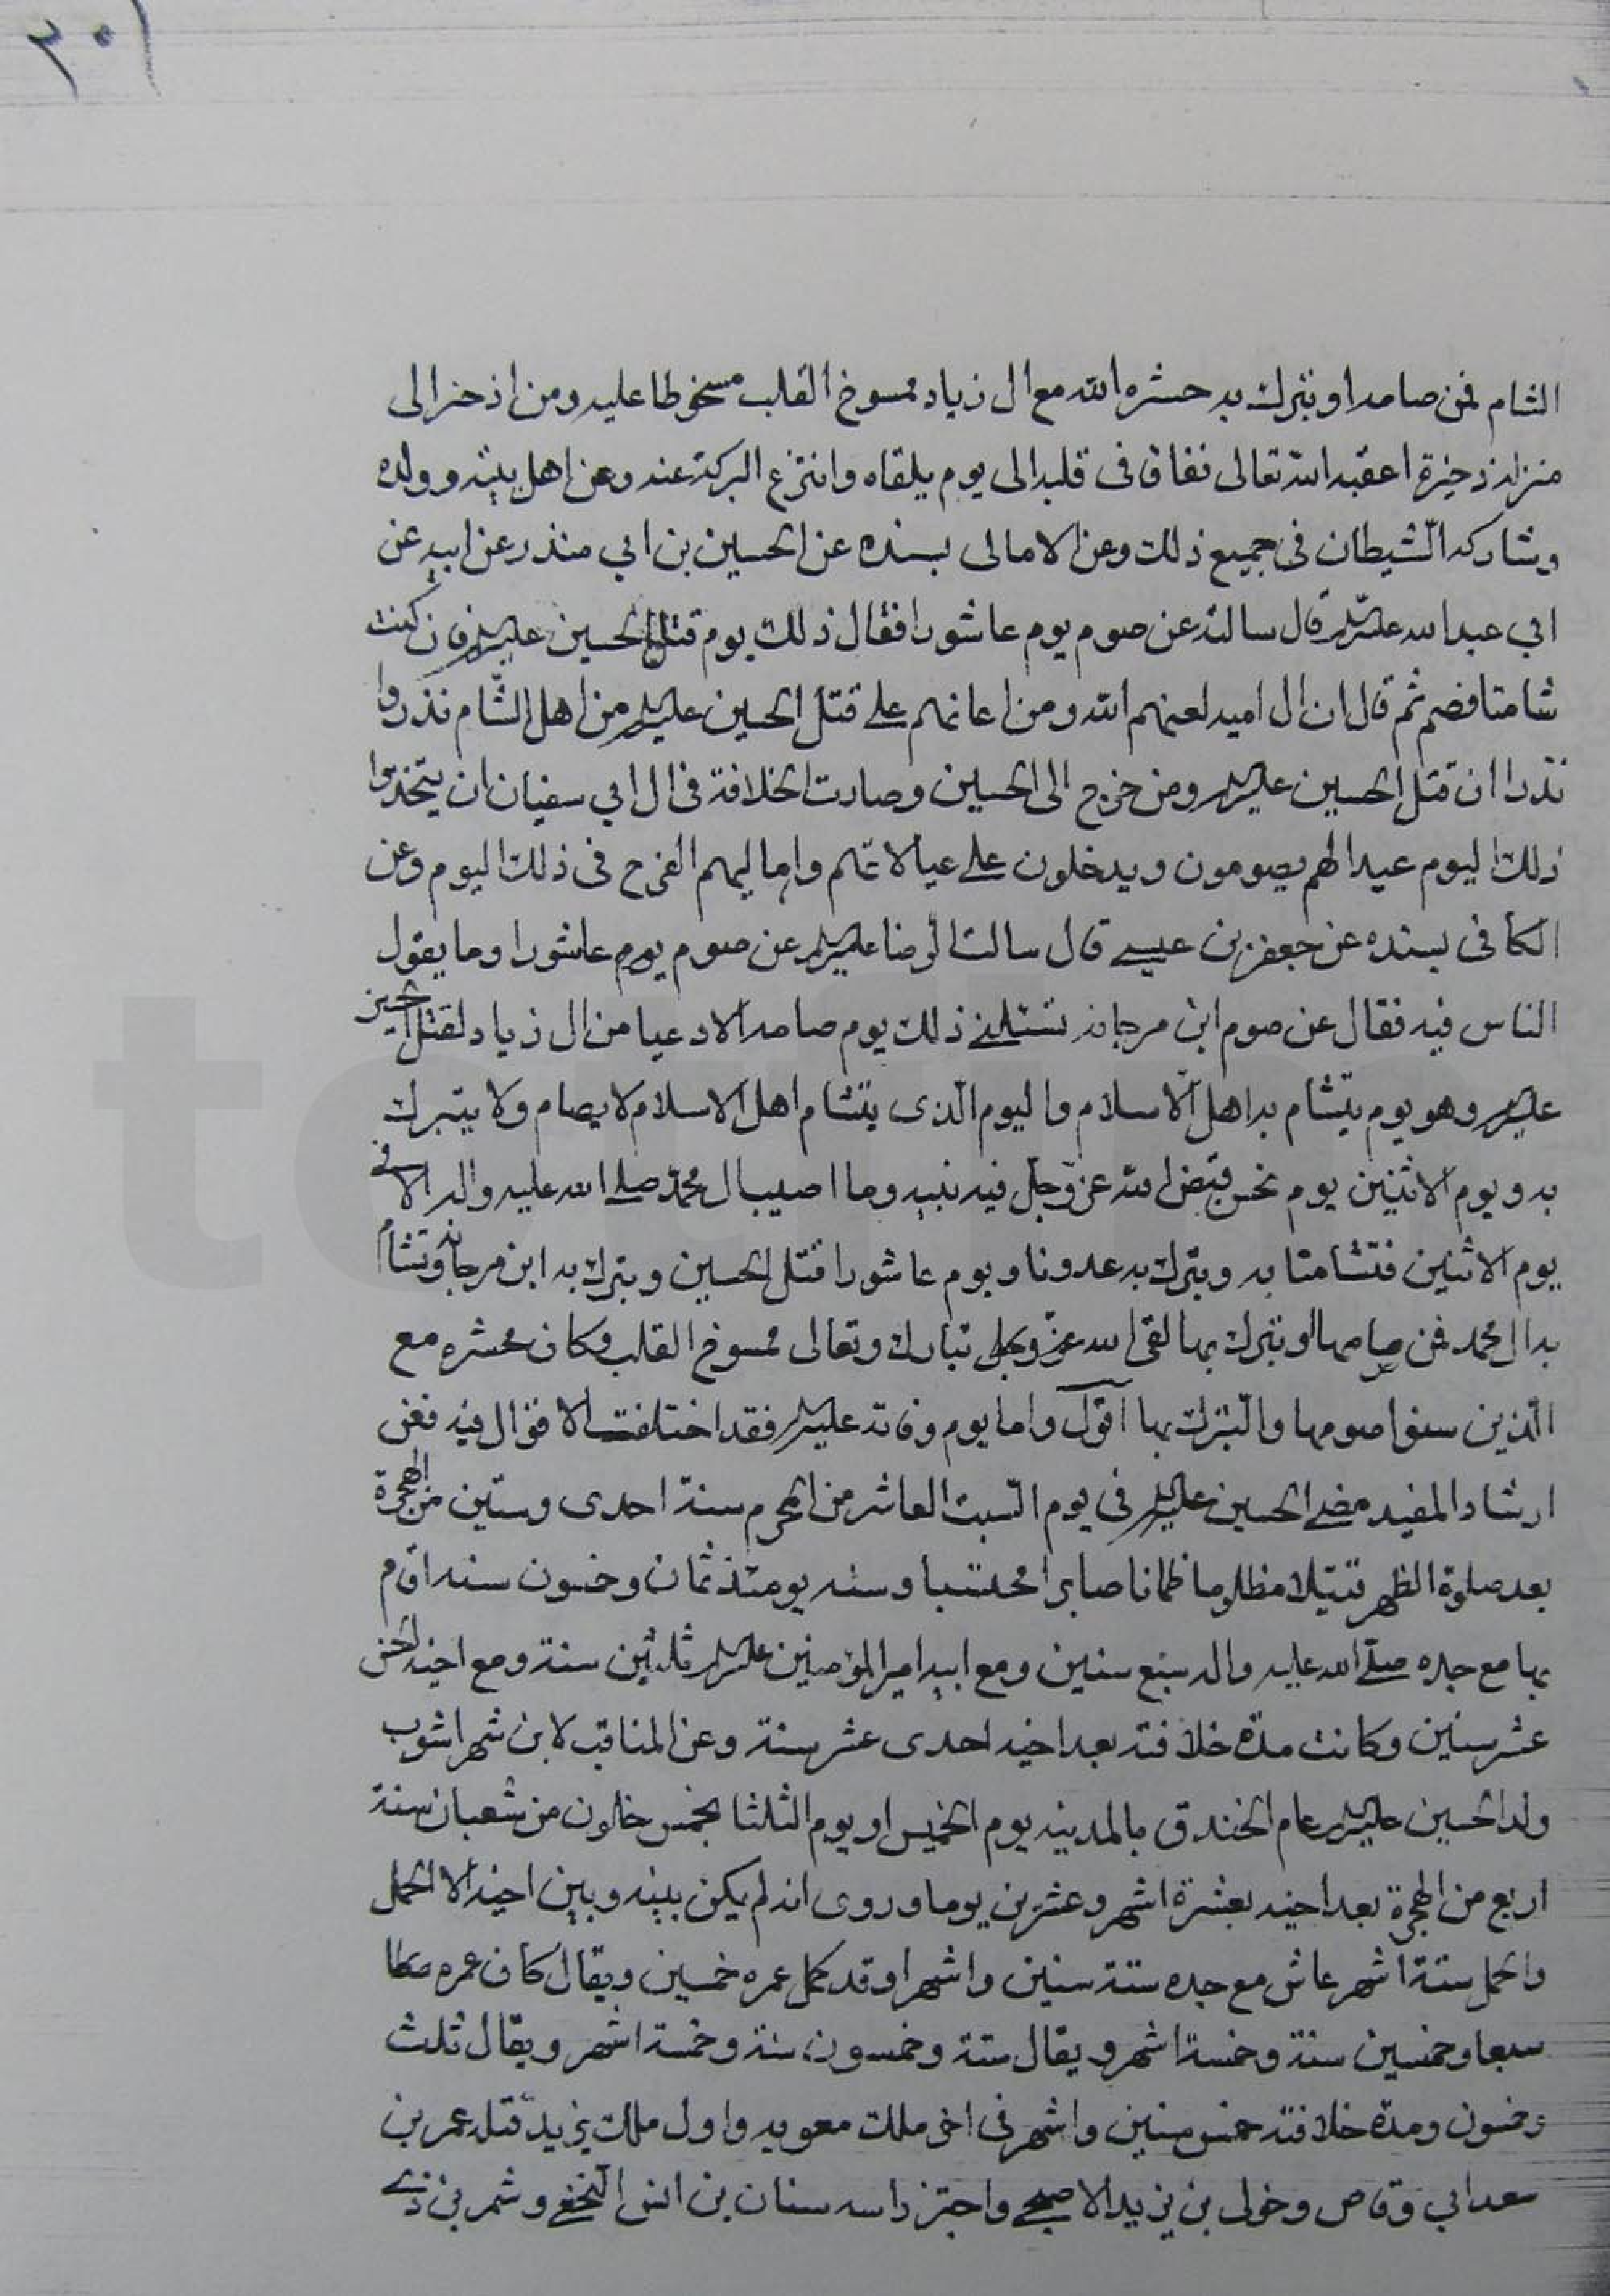 ٣٠١
الشام فمن صامه او تبرك به حشره الله مع ال زياد ممسوخ القلب مسخوطا عليه ومن اذخر الى
منزله ذخيرة اعقبه الله تعالى نفاقا فى قلبه الى يوم يلقاه وانتزع البركة عنه وعن اهل بيته وولده
وشاركه الشيطان فى جميع ذلك وعن الامالى بسنده عن الحسين بن ابي منذر عن ابيه عن
ابي عبدالله عليه السلام قال سالته عن صوم يوم عاشورا فقال ذلك يوم قتل الحسين عليه السلام فان كنت
شامتا فصم ثم قال ان ال اميه لعنهم الله ومن اعانهم على قتل الحسين عليه السلام من اهل الشام نذروا
نذرا ان قتل الحسين عليه السلام ومن خرج الى الحسين وصارت الخلافة فى ال ابي سفيان ان يتخذوا
ذلك اليوم عيدا لهم يصومون ويدخلون على عيالاتهم واهاليهم الفرح فى ذلك اليوم وعن
الكافى بسنده عن جعفر بن عيسى قال سالت الرضا عليه السلام عن صوم يوم عاشورا وما يقول
الناس فيه فقال عن صوم ابن مرجانه تسئلنى ذلك يوم صامه الادعيا من ال زياد لقتل الحسين
عليه السلام وهو يوم يتشام به اهل الاسلام واليوم الذى يتشام اهل الاسلام لا يصام ولا يتبرك
به ويوم الاثنين يوم نحس قبض الله عز وجل فيه نبيه وما اصيب ال محمد صلى الله عليه واله الا فى
يوم الاثنين فتشامنا به وتبرك به عدونا ويوم عاشورا قتل الحسين وتبرك به ابن مرجانه وتشام
به ال محمد فمن صامها او تبرك بها لقى الله عز وجل تبارك وتعالى ممسوخ القلب وكان محشره مع
الذين سنوا صومها والتبرك بها اقول واما يوم وفاته عليه السلام فقد اختلفت الاقوال فيه فعن
ارشاد المفيد مضى الحسين عليه السلام فى يوم السبت العاشر من المحرم سنة احدى وستين من الهجرة
بعد صلوة الظهر قتيلا مظلوما ظمانا صابرا محتسبا وسنه يومئذ ثمان وخمسون سنه اقام
بها مع جده صلى الله عليه واله سبع سنين ومع ابيه امير المؤمنين عليه السلام ثلثين سنة ومع اخيه الحسن
عشر سنين وكانت مدة خلافته بعد اخيه احدى عشر سنة وعن المناقب لابن شهراشوب
ولد الحسين عليه السلام عام الخندق بالمدينه يوم الخميس او يوم الثلثا لخمس خلون من شعبان سنة
اربع من الهجرة بعد اخيه بعشرة اشهر وعشرين يوما وروى انه لم يكن بينه وبين اخيه الا الحمل
والحمل ستة اشهر عاش مع جده ستة سنين واشهرا وقد كمل عمره خمسين ويقال كان عمره
سبعا وخمسين سنة وخمسة اشهر ويقال ستة وخمسون سنة وخمسة اشهر ويقال ثلث
وخمسون ومدة خلافته خمس سنين واشهر فى اخر ملك معويه واول ملك يزيد قتله عمر بن
سعد ابي وقاص وخولى بن يزيد الاصبحى واجتز راسه سنان بن انس النخعى وشمر بن ذى